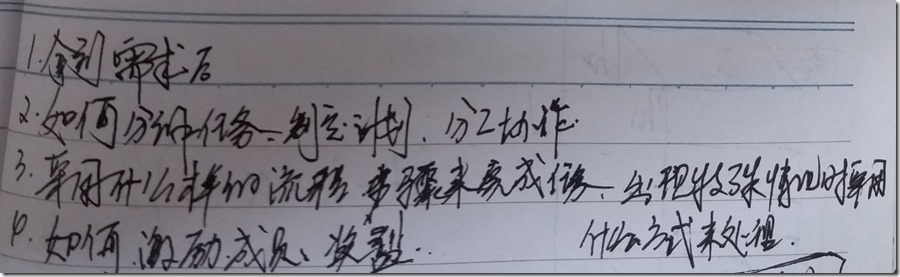 1.拿到需求后
2.如何分解任务、制定计划、分工协作.
3.采用什么样的流程步骤来完成任务、出现特殊情况时采用
什么方式来处理.
4.如何激励成员、奖